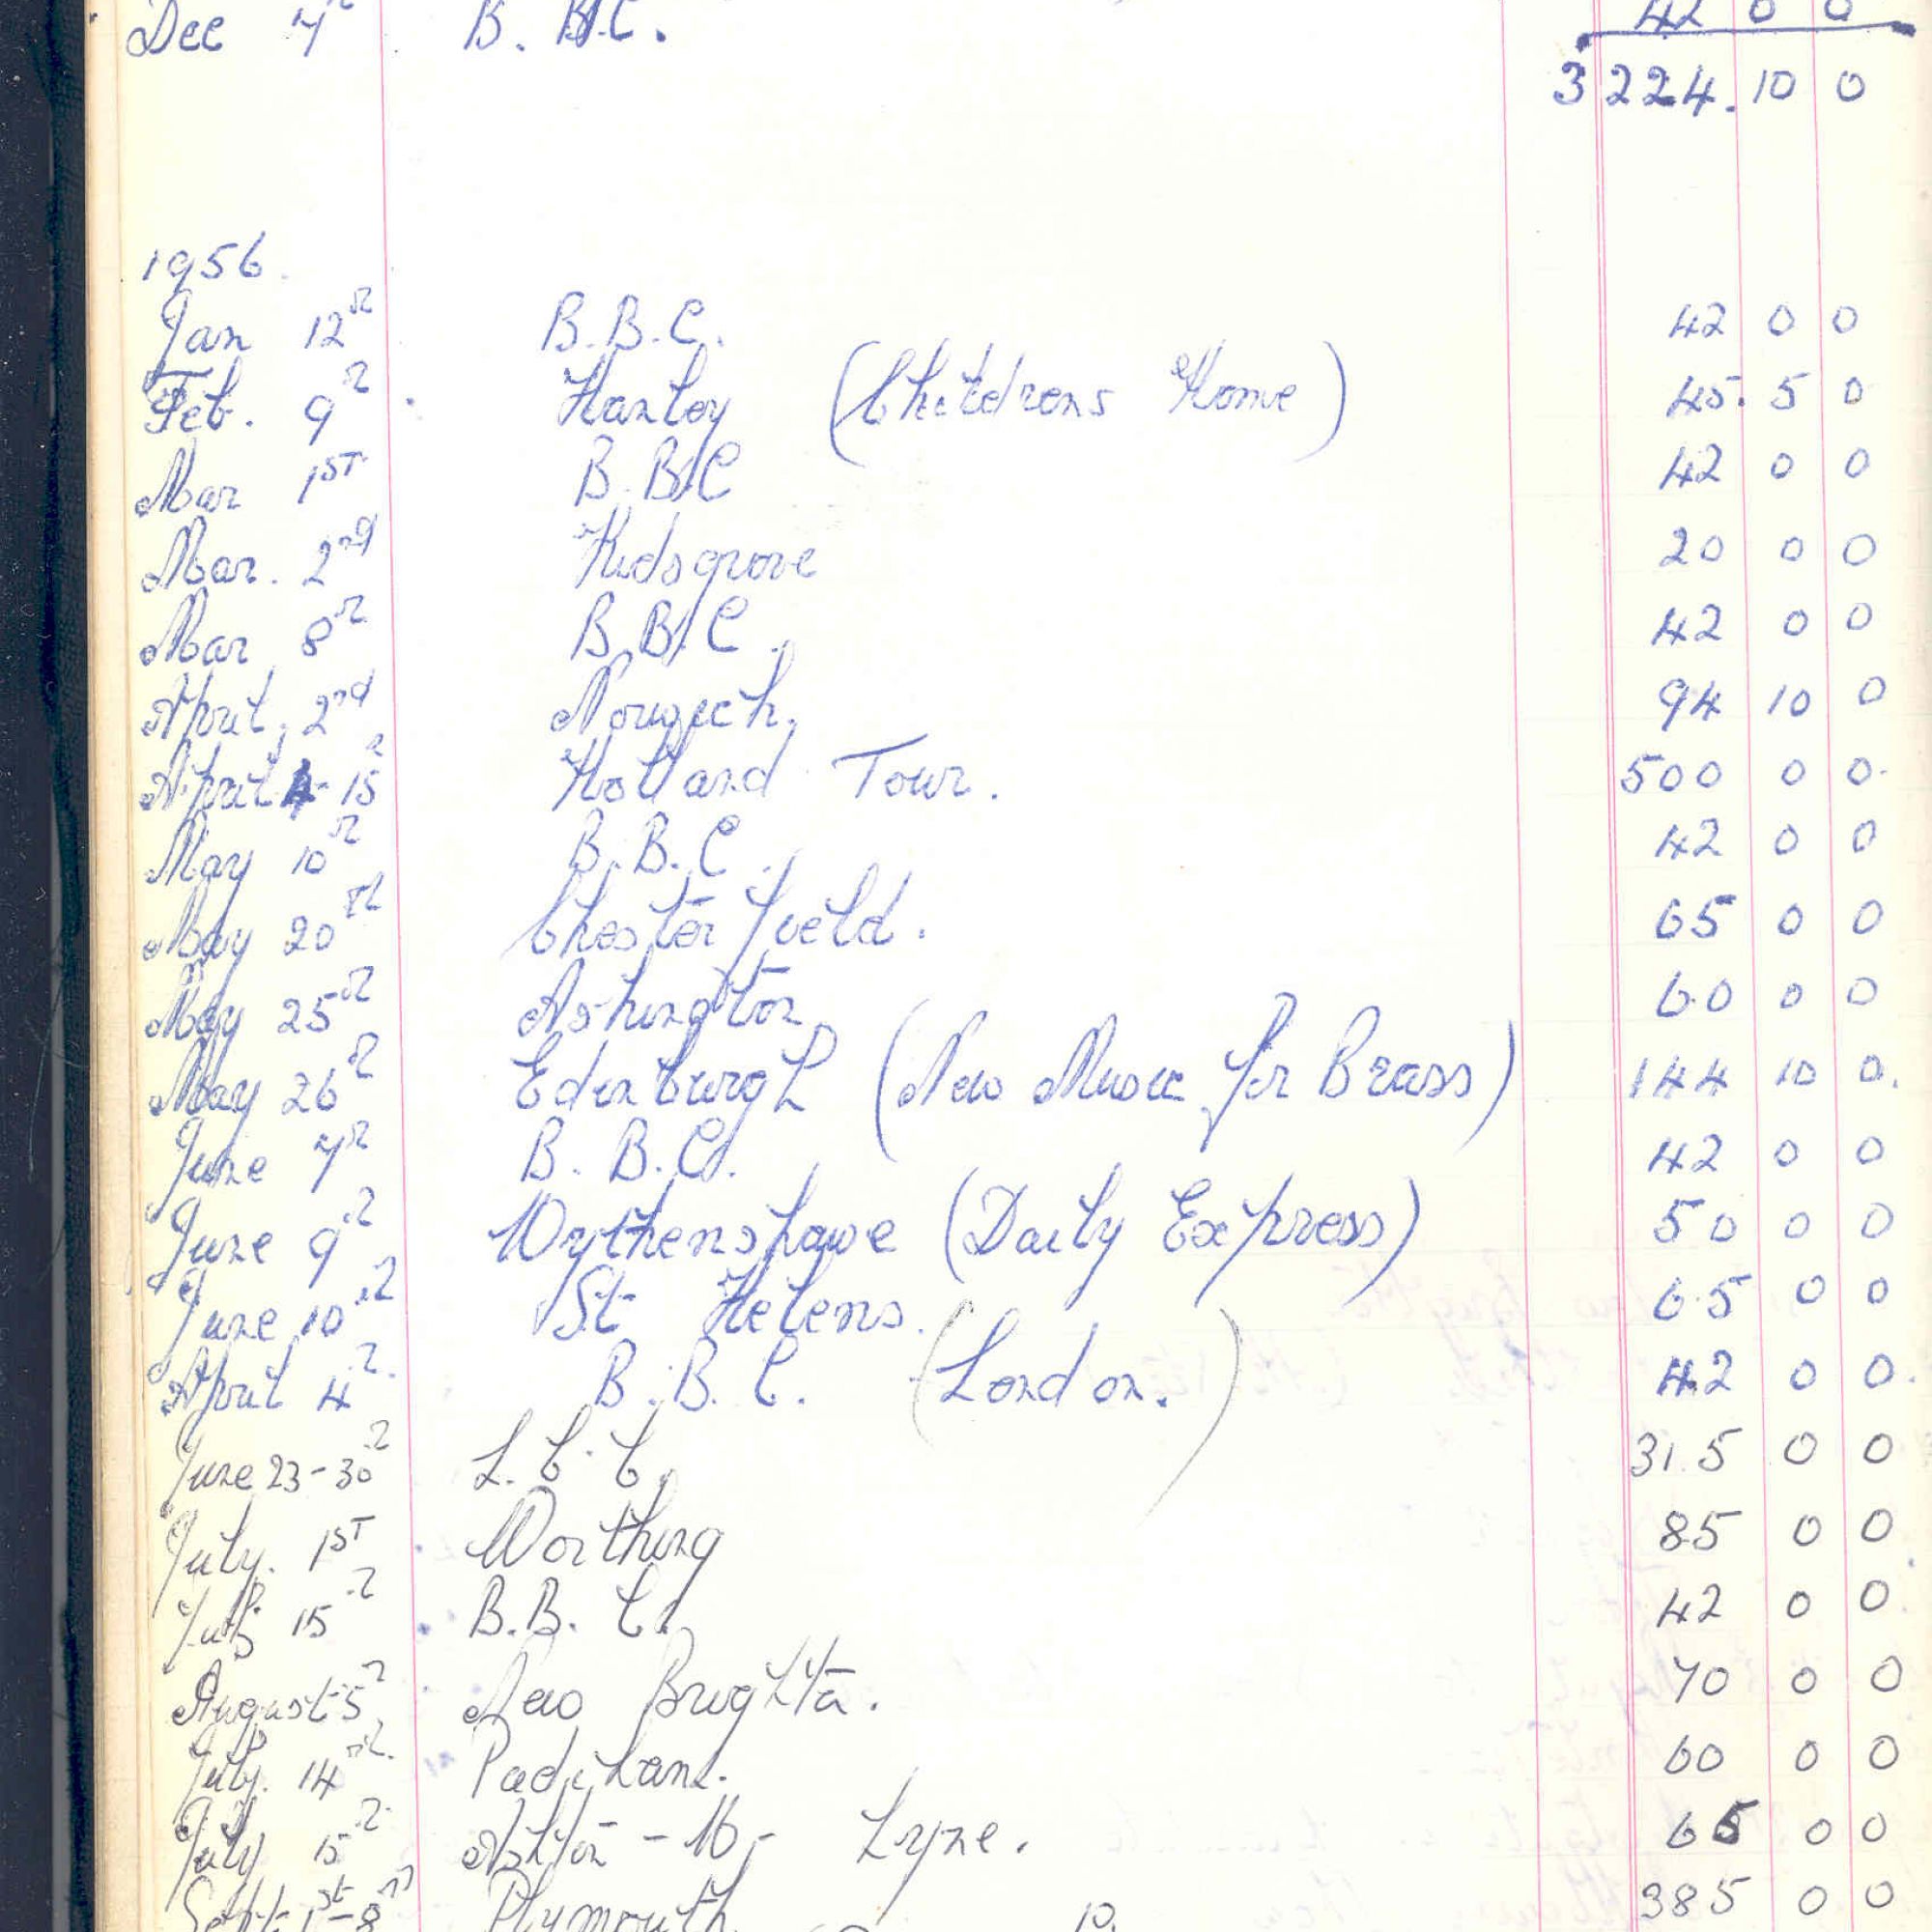 Dec 7th B.B.C. 42 0 0
3224. 10 0
1956.
Jan 12th B.B.C. 42 0 0
Feb. 9th Hanley (Childrens Home) 45. 5 0
Mar 1st B.B.C 42 0 0
Mar. 2nd Kidsgrove 20 0 0
Mar 8th B.B.C. 42 0 0
April. 2nd Norwich. 94 10 0
April 4-15th Holland Tour. 500 0 0
May 10th B.B.C. 42 0 0
May 20th Chesterfield. 65 0 0
May 25th Ashington 60 0 0
May 26th Edinburgh (New Music for Brass) 144 10 0.
June 7th B.B.C. 42 0 0
June 9th Wythenshawe (Daily Express) 50 0 0
June 10th St Helens. 65 0 0
April 4th B.B.C. (London.) 42 0 0.
June 23-30th L.C.C. 315 0 0
July. 1st Worthing 85 0 0
July 15th B.B.C. 42 0 0
August 5th New Brighton. 70 0 0
July. 14th Padiham. 60 0 0
July 15th Ashton-U-Lyne. 65 0 0
Sept. 1st-8th Plymouth 385 0 0